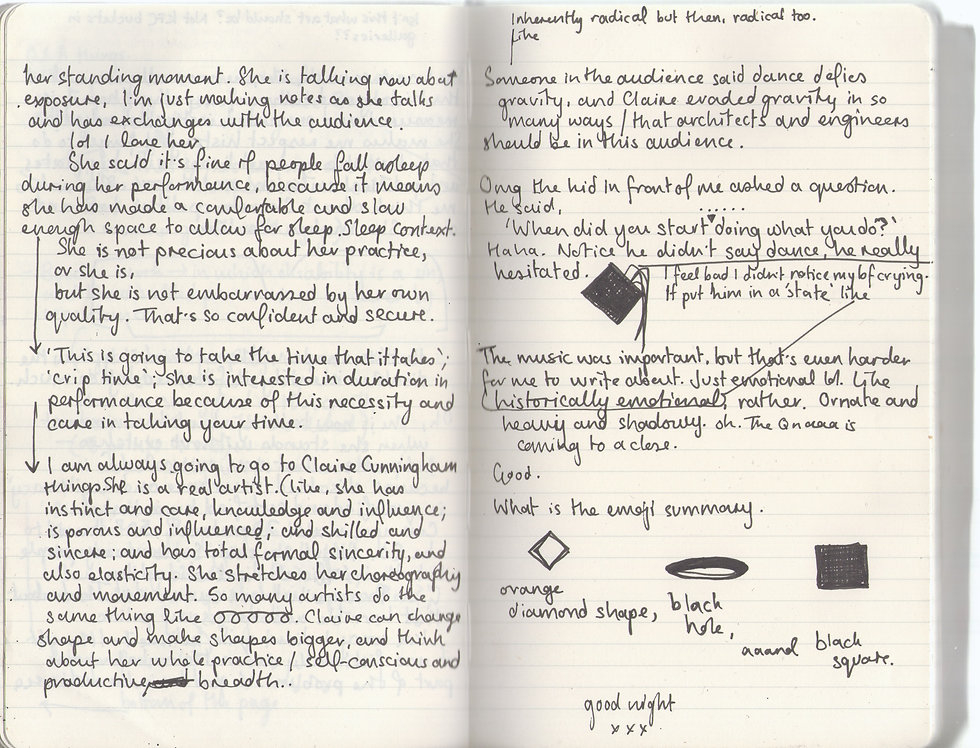 her standing moment. She is talking now about
exposure, I'm just making notes as she talks
and has exchanges with the audience.
lol I love her.
She said it's fine if people fall asleep
during her performance, because it means
she has made a comfortable and slow
enough space to allow for sleep. Sleep context.
She is not precious about her practice,
or she is,
but she is not embarrassed by her own
quality. That's so confident and secure.
'This is going to take the time that it takes';
'crip time'; she is interested in duration in
performance because of this necessity and
care in taking your time.
I am always going to go to Claire Cunningham
things. She is a real artist. (like, she has
instinct and care, knowledge and influence;
is porous and influenced; and skilled and
sincere; and has total formal sincerity, and
also elasticity. She stretches her choreography
and movement. So many artists do the
same thing like ooooo. Claire can change
shape and make shapes bigger, and think
about her whole practice / self-conscious and
productive breadth..
Inherently radical but then, radical too.
Like
Someone in the audience said dance defies
gravity, and Claire evaded gravity in so
many ways / that architects and engineers
should be in this audience.
Omg the kid in front of me asked a question.
He said,
......
'When did you start doing what you do?'
Haha. Notice he didn't say dance, he really
hesitated.
I feel bad I didn't notice my bf crying.
It put him in a 'state' like
The music was important, but that's even harder
for me to write about. Just emotional lol. Like
historically emotional, rather. Ornate and
heavy and shadowy. oh. The Qnaaa is
coming to a close.
Good.
What is the emoji summary.
orange
diamond shape,
black
hole,
aaand black
square.
good night
x x x